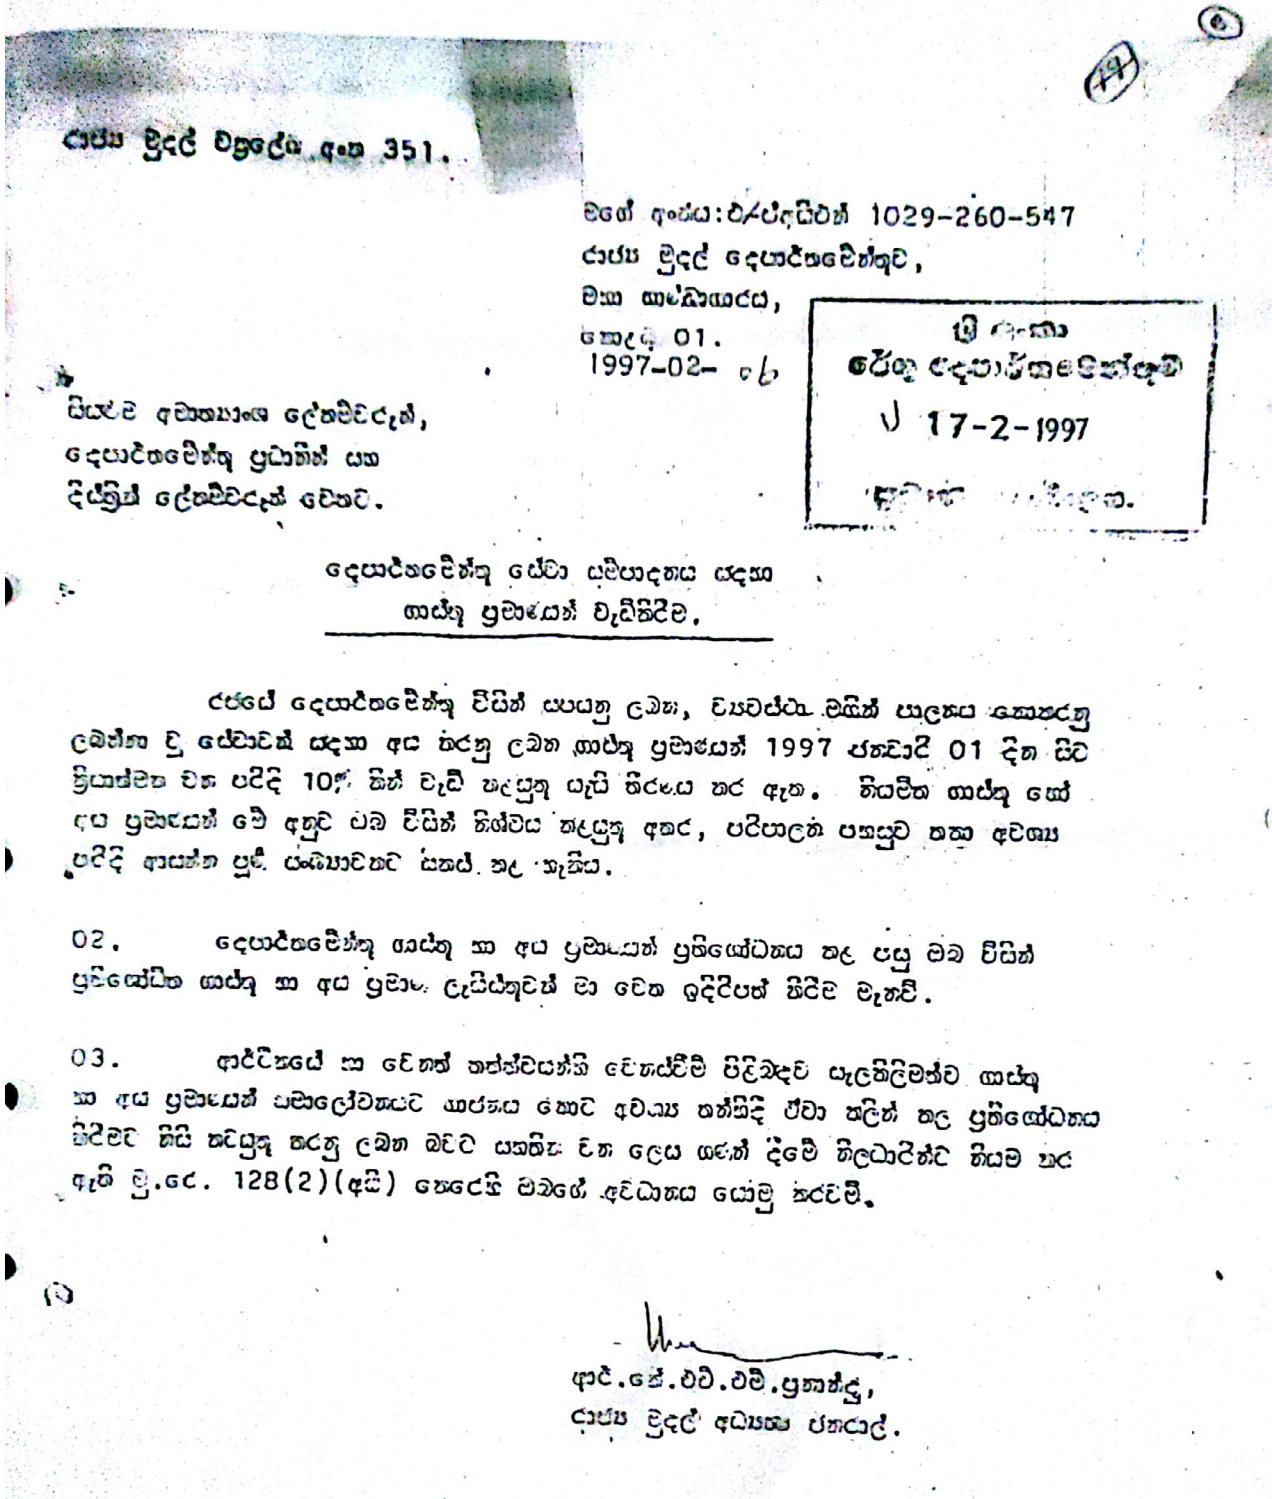 රාජ්‍ය මුදල් චක්‍රලේඛ අංක 351.
මගේ අංකය:එ/එෆ්අයිඑන් 1029-260-547
රාජ්‍ය මුදල් දෙපාර්තමේන්තුව,
මහා භාණ්ඩාගාරය,
කොළඹ 01.
1997-02- 06
ශ්‍රී ලංකා
රේගු දෙපාර්තමේන්තුව
17-2-1997
සියළුම අමාත්‍යාංශ ලේකම්වරුන්,
දෙපාර්තමේන්තු ප්‍රධානීන් සහ
දිස්ත්‍රික් ලේකම්වරුන් වෙතට.
දෙපාර්තමේන්තු සේවා සම්පාදනය සඳහා
ගාස්තු ප්‍රමාණයන් වැඩිකිරීම.
රජයේ දෙපාර්තමේන්තු විසින් සපයනු ලබන, ව්‍යවස්ථා මගින් පාලනය නොකරනු
ලබන්නා වූ සේවාවන් සඳහා අය කරනු ලබන ගාස්තු ප්‍රමාණයන් 1997 ජනවාරි 01 දින සිට
ක්‍රියාත්මක වන පරිදි 10% කින් වැඩි කළයුතු යැයි තීරණය කර ඇත. නියමිත ගාස්තු හෝ
අය ප්‍රමාණයන් මේ අනුව ඔබ විසින් නිශ්චය කළයුතු අතර, පරිපාලන පහසුව තකා අවශ්‍ය
පරිදි ආසන්න පූර්ණ සංඛ්‍යාවකට සකස් කළ හැකිය.
02. දෙපාර්තමේන්තු ගාස්තු හා අය ප්‍රමාණයන් ප්‍රතිශෝධනය කළ පසු ඔබ විසින්
ප්‍රතිශෝධිත ගාස්තු හා අය ප්‍රමාණ ලැයිස්තුවක් මා වෙත ඉදිරිපත් කිරීම මැනවි.
03. ආර්ථිකයේ හා වෙනත් තත්ත්වයන්හි වෙනස්වීම් පිළිබඳව සැලකිලිමත්ව ගාස්තු
හා අය ප්‍රමාණයන් සමාලෝචනයට භාජනය කොට අවශ්‍ය තන්හිදී ඒවා කලින් කල ප්‍රතිශෝධනය
කිරීමට නිසි කටයුතු කරනු ලබන බවට සහතික වන ලෙස ගණන් දීමේ නිලධාරීන්ට නියම කර
ඇති මු.රෙ. 128(2)(අයි) කෙරෙහි ඔබගේ අවධානය යොමු කරවමි.
ආර්.කේ.එච්.එම්.ප්‍රනාන්දු,
රාජ්‍ය මුදල් අධ්‍යක්ෂ ජනරාල්.